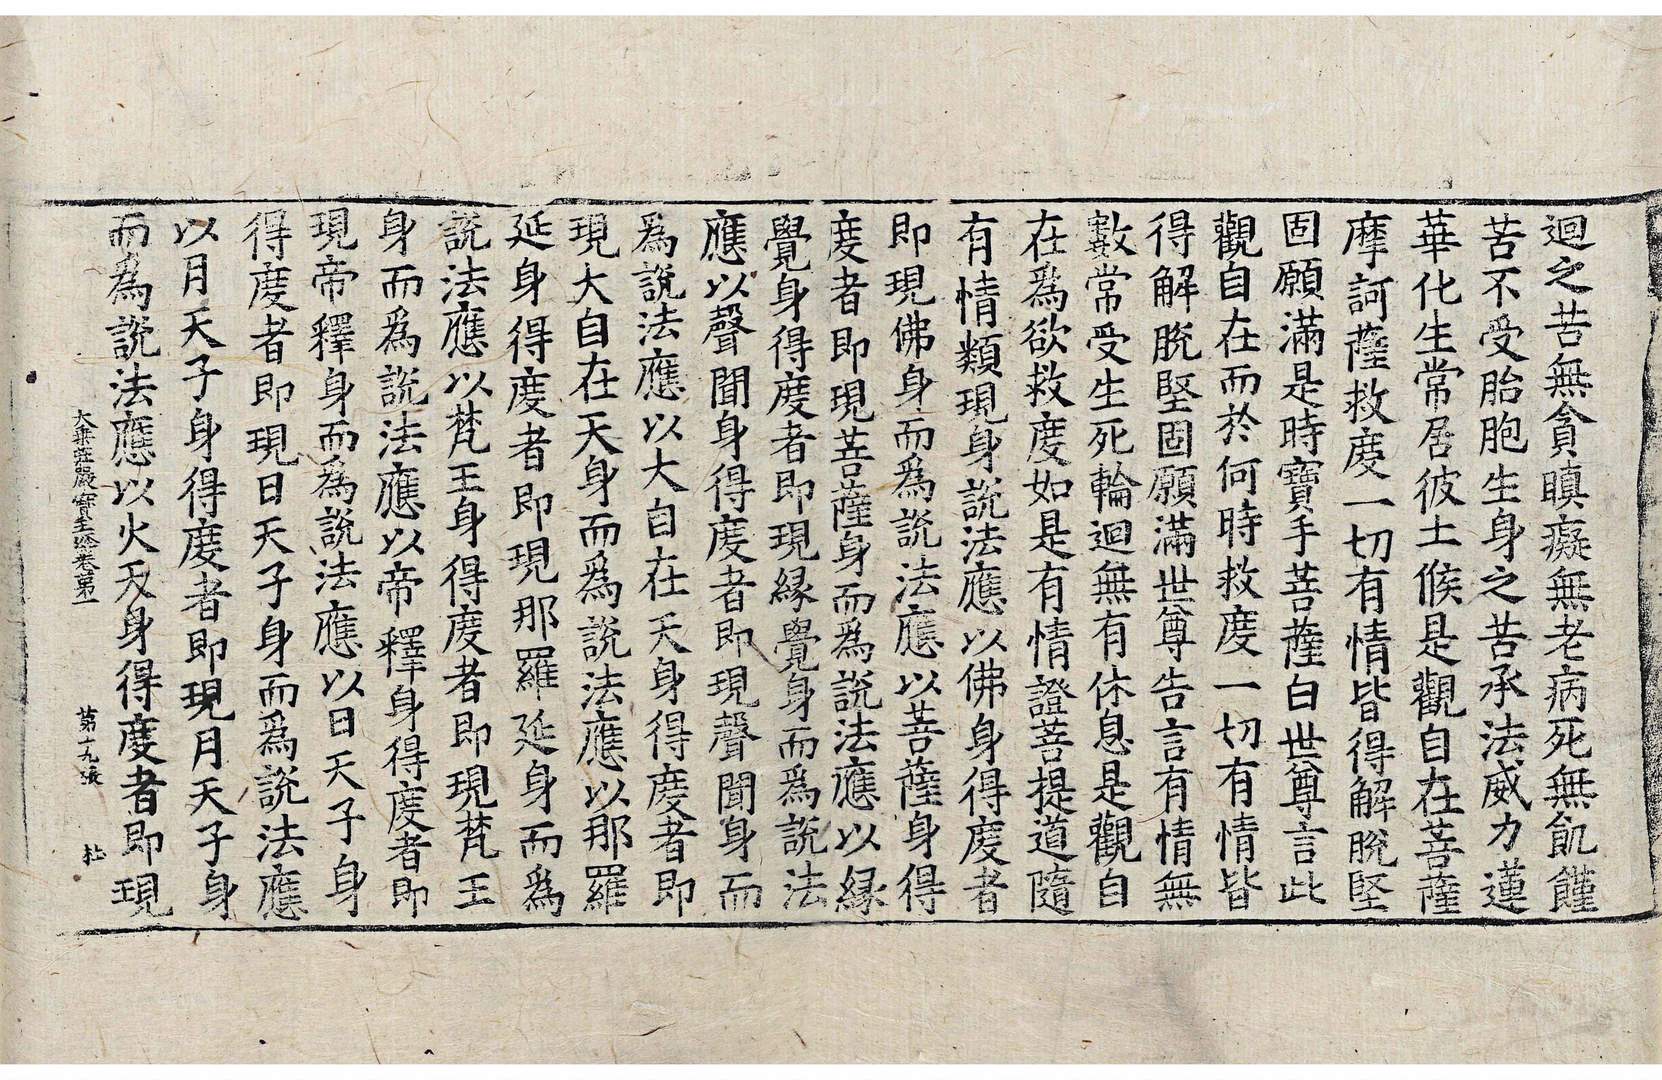 迴之苦無貪瞋癡無老病死無飢饉
苦不受胎胞生身之苦承法威力蓮
華化生常居彼土候是觀自在菩薩
摩訶薩救度一切有情皆得解脫堅
固願滿是時寶手菩薩白世尊言此
觀自在而於何時救度一切有情皆
得解脫堅固願滿世尊告言有情無
數常受生死輪迴無有休息是觀自
在爲欲救度如是有情證菩提道隨
有情類現身說法應以佛身得度者
即現佛身而爲說法應以菩薩身得
度者即現菩薩身而爲說法應以緣
覺身得度者即現緣覺身而爲說法
應以聲聞身得度者即現聲聞身而
爲說法應以大自在天身得度者即
現大自在天身而爲說法應以那羅
延身得度者即現那羅延身而爲
說法應以梵王身得度者即現梵王
身而爲說法應以帝釋身得度者即
現帝釋身而爲說法應以日天子身
得度者即現日天子身而爲說法應
以月天子身得度者即現月天子身
而爲說法應以火天身得度者即現
大乘莊嚴寶王經卷第一 第十九張